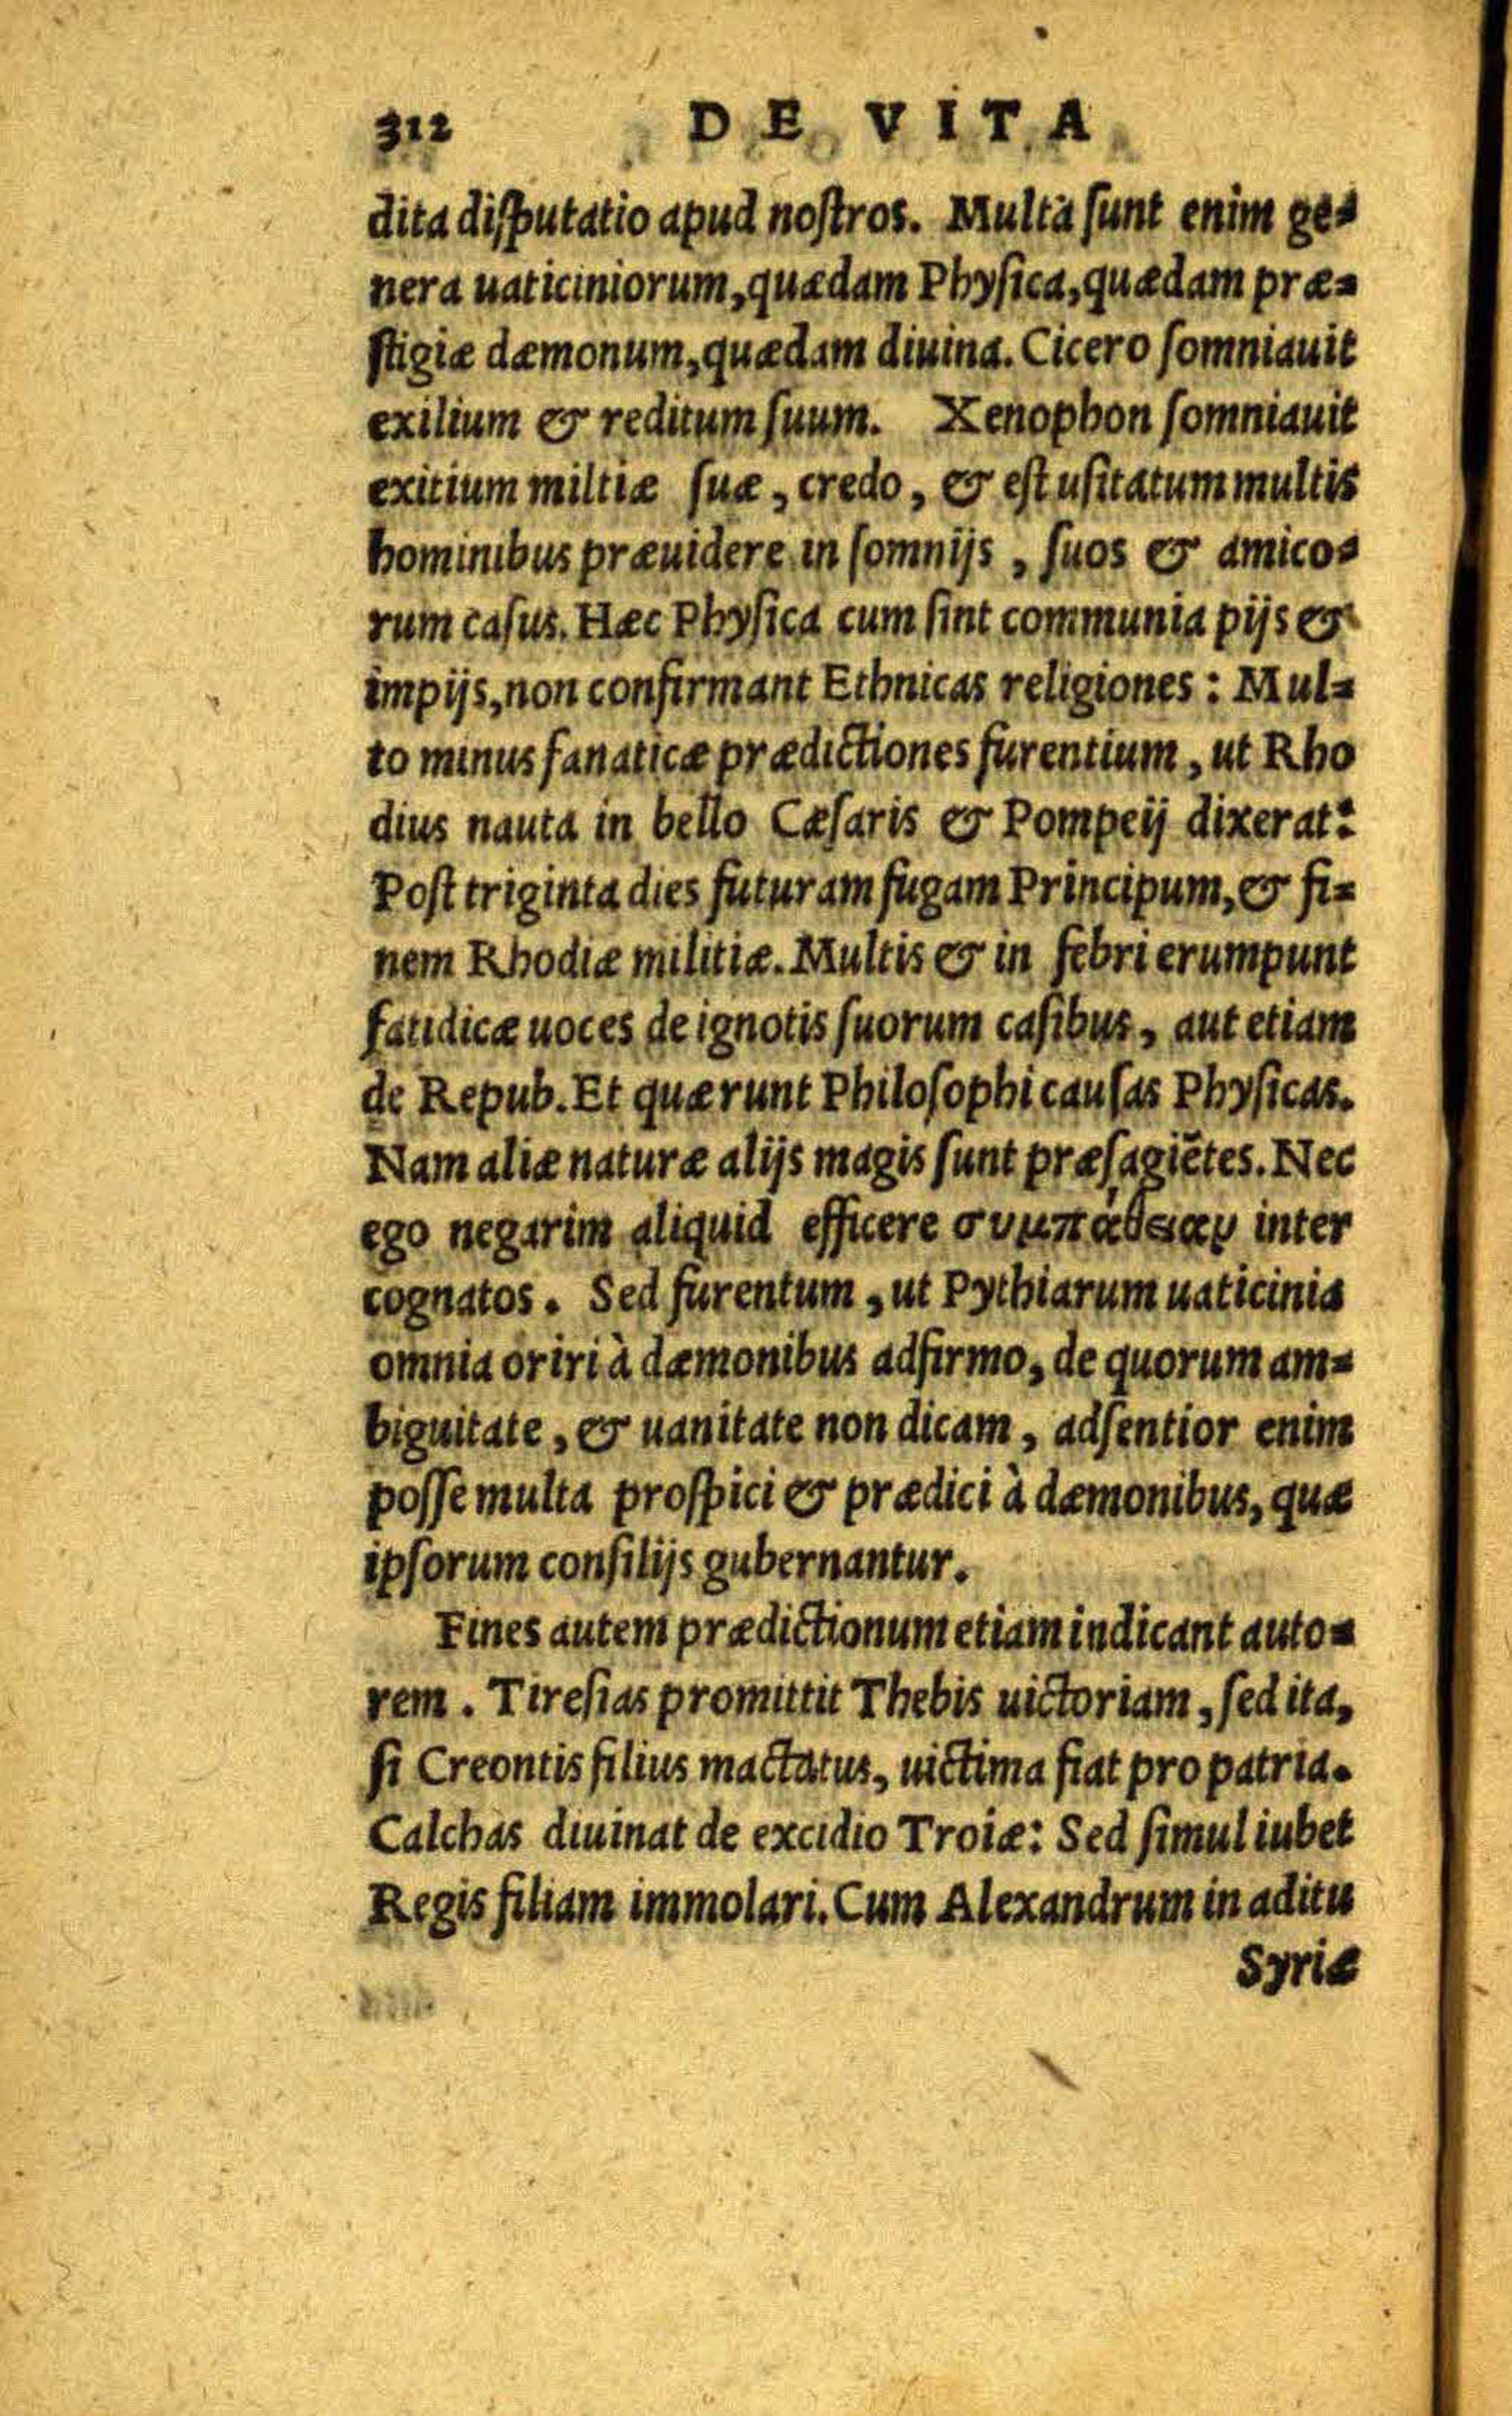 312 DE VITA
dita diſputatio apud noſtros. Multa ſunt enim ge=
nera uaticiniorum, quædam Phyſica, quædam præ=
ſtigiæ dæmonum, quædam diuina. Cicero ſomniauit
exilium & reditum ſuum. Xenophon ſomniauit
exitium miltiæ ſuæ, credo, & eſt uſitatum multis
hominibus præuidere in ſomnijs, ſuos & amico=
rum caſus. Hæc Phyſica cum ſint communia pijs &
impijs, non confirmant Ethnicas religiones: Mul=
to minus fanaticæ prædictiones furentium, ut Rho
dius nauta in bello Cæſaris & Pompeij dixerat:
Poſt triginta dies futuram fugam Principum, & fi=
nem Rhodiæ militiæ. Multis & in febri erumpunt
fatidicæ uoces de ignotis ſuorum caſibus, aut etiam
de Repub. Et quærunt Philoſophi cauſas Phyſicas.
Nam aliæ naturæ alijs magis ſunt præſagiẽtes. Nec
ego negarim aliquid efficere συμπάθειαν inter
cognatos. Sed furentum, ut Pythiarum uaticinia
omnia oriri à dæmonibus adfirmo, de quorum am=
biguitate, & uanitate non dicam, adſentior enim
poſſe multa proſpici & prædici à dæmonibus, quæ
ipſorum conſilijs gubernantur.
Fines autem prædictionum etiam indicant auto=
rem. Tireſias promittit Thebis uictoriam, ſed ita,
ſi Creontis filius mactatus, uictima fiat pro patria.
Calchas diuinat de excidio Troiæ: Sed ſimul iubet
Regis filiam immolari. Cum Alexandrum in aditu
Syriæ